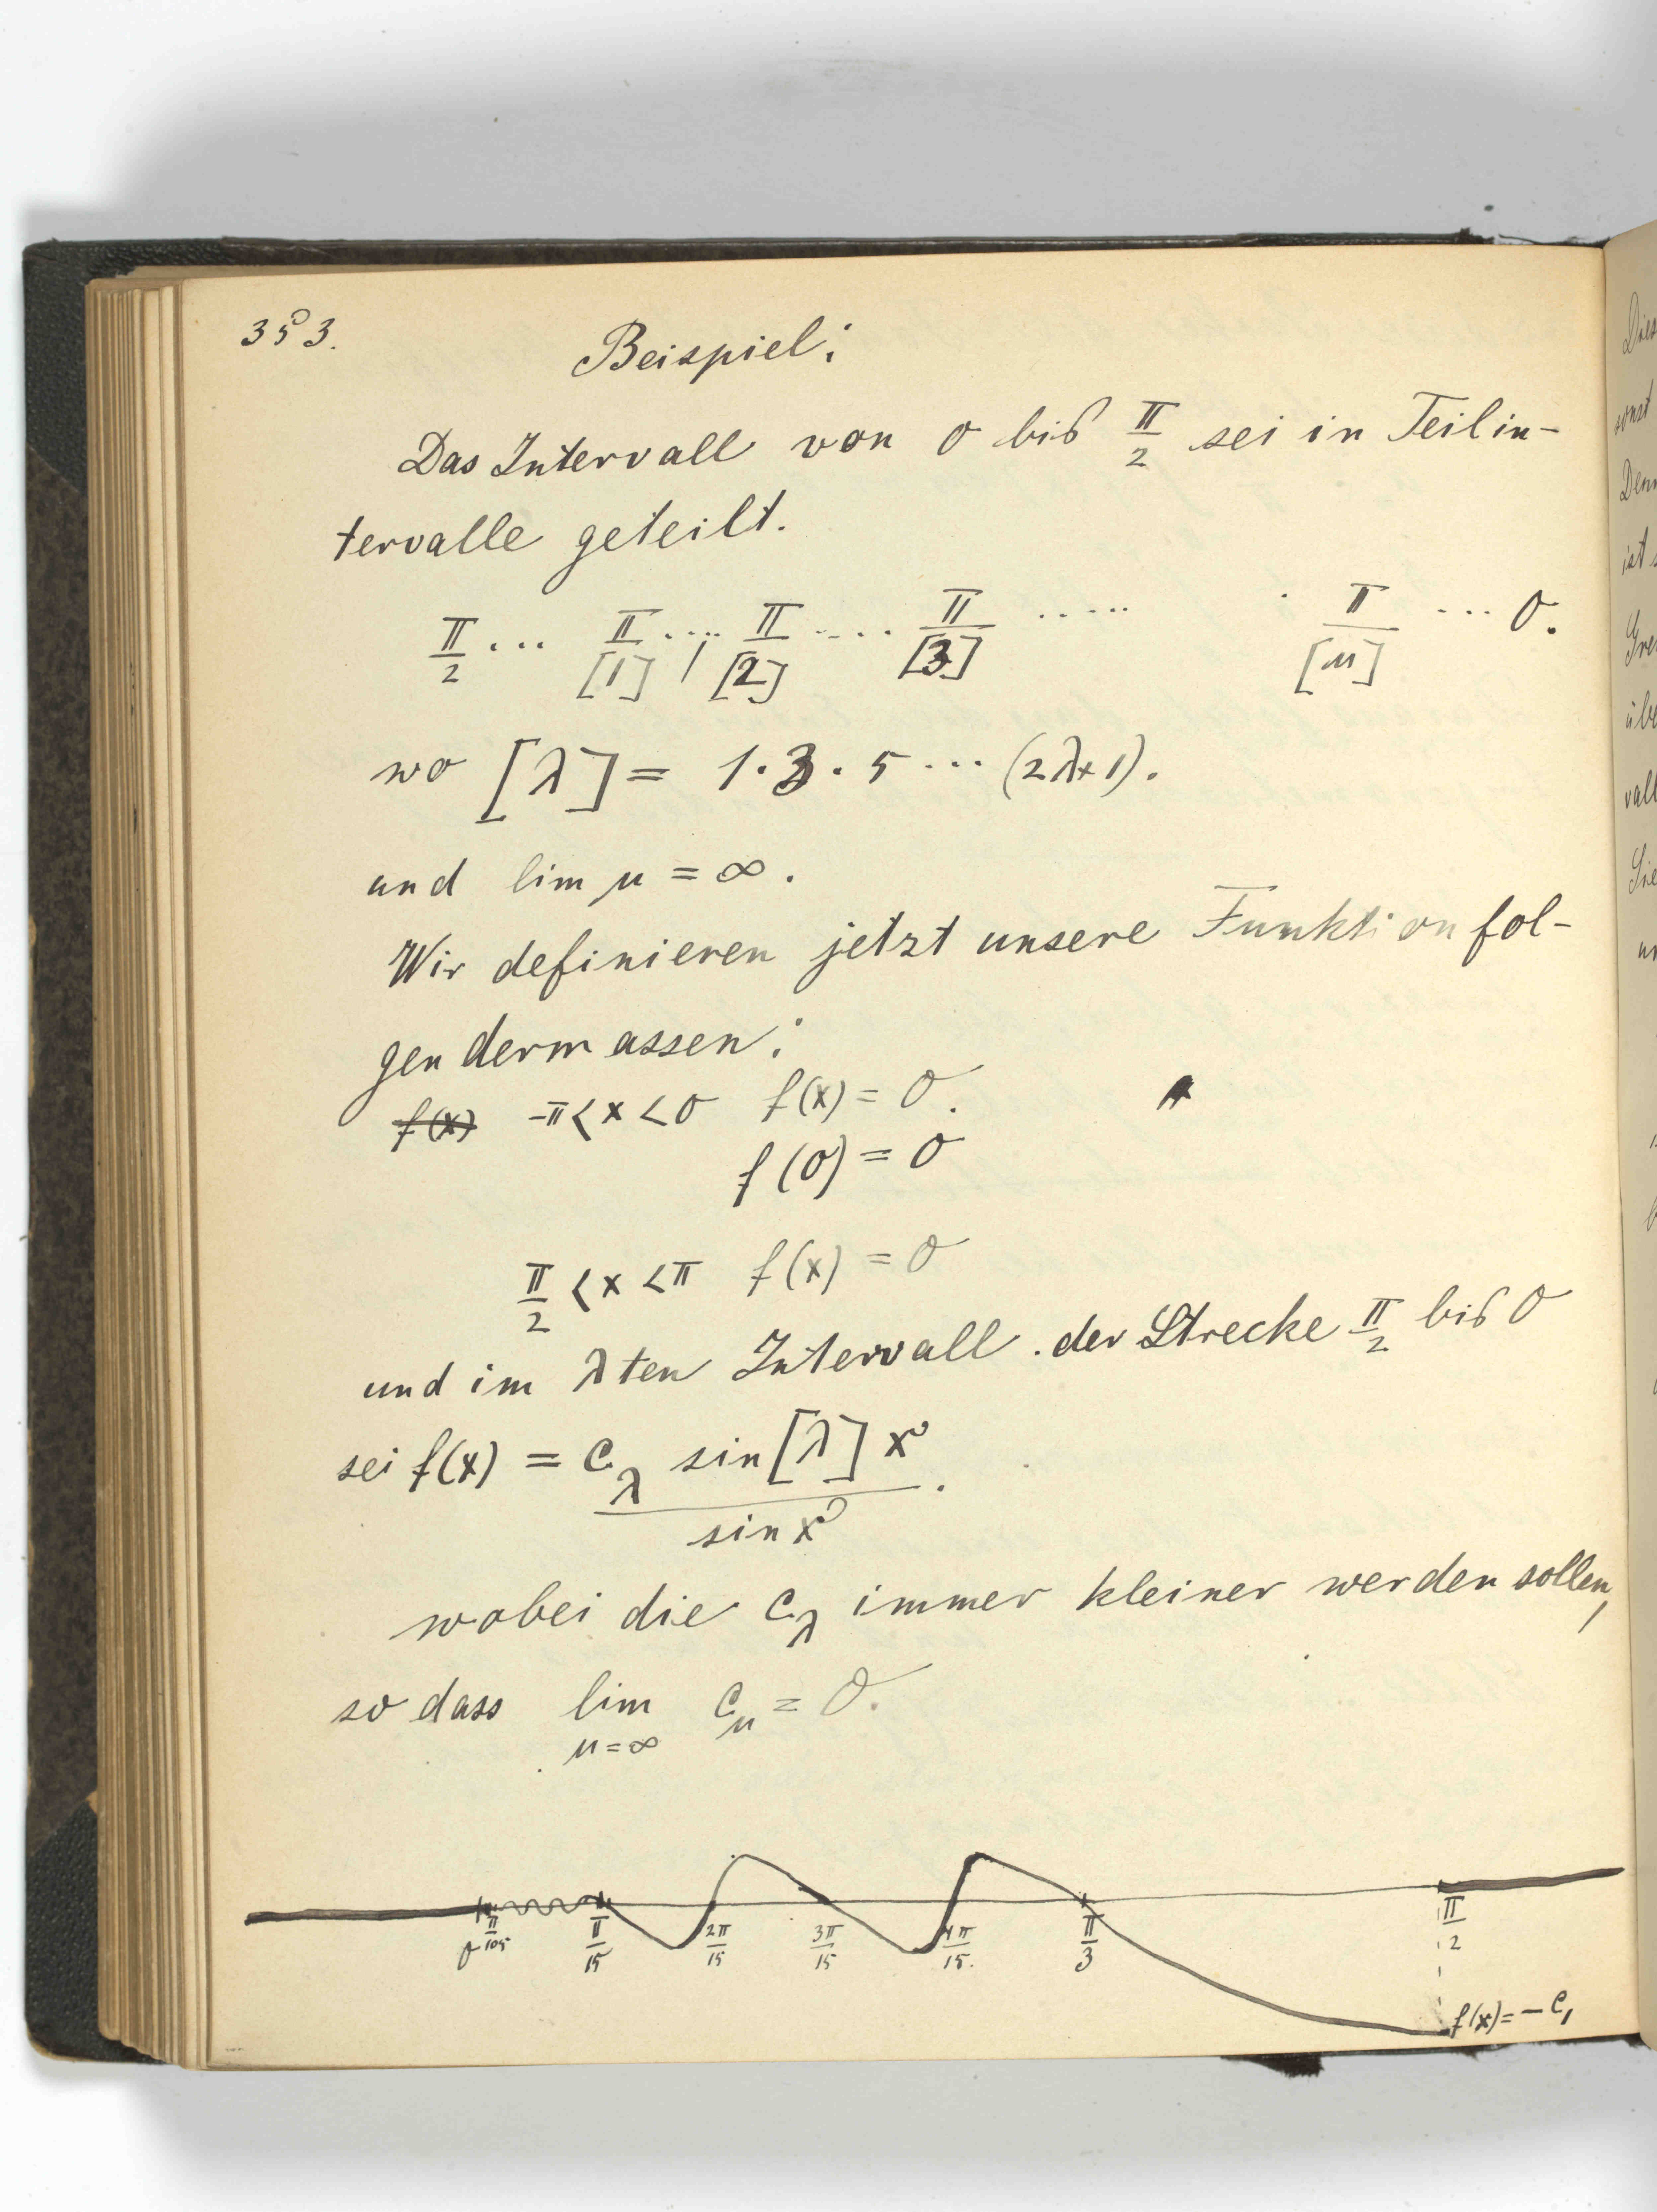 353.
Beispiel:
Das Intervall von 0 bis π/2 sei in Teilin-
tervalle geteilt.
π/2 ... π/[1] .... π/[2] ..... π/[3] ..... π/[μ] ... 0.
wo [λ] = 1·3·5 ... (2λ+1).
und lim μ = ∞.
Wir definieren jetzt unsere Funktion fol-
gendermassen:
f(x) -π < x < 0 f(x) = 0.
f(0) = 0
π/2 < x < π f(x) = 0
und im λten Intervall der Strecke π/2 bis 0
sei f(x) = c_λ sin[λ]x / sin x.
wobei die c_λ immer kleiner werden sollen,
so dass lim c_μ = 0.
μ=∞
0 π/105 π/15 2π/15 3π/15 4π/15. π/3 π/2
f(x) = -c₁